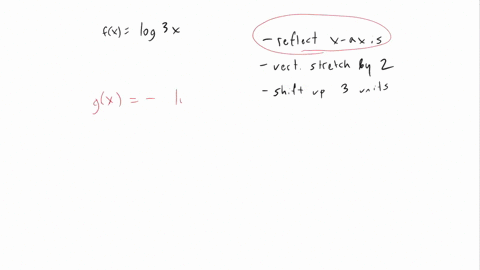 f(x) = log 3x
- reflect x-axis
- vert. stretch by 2
- shift up 3 units
g(x) = - l